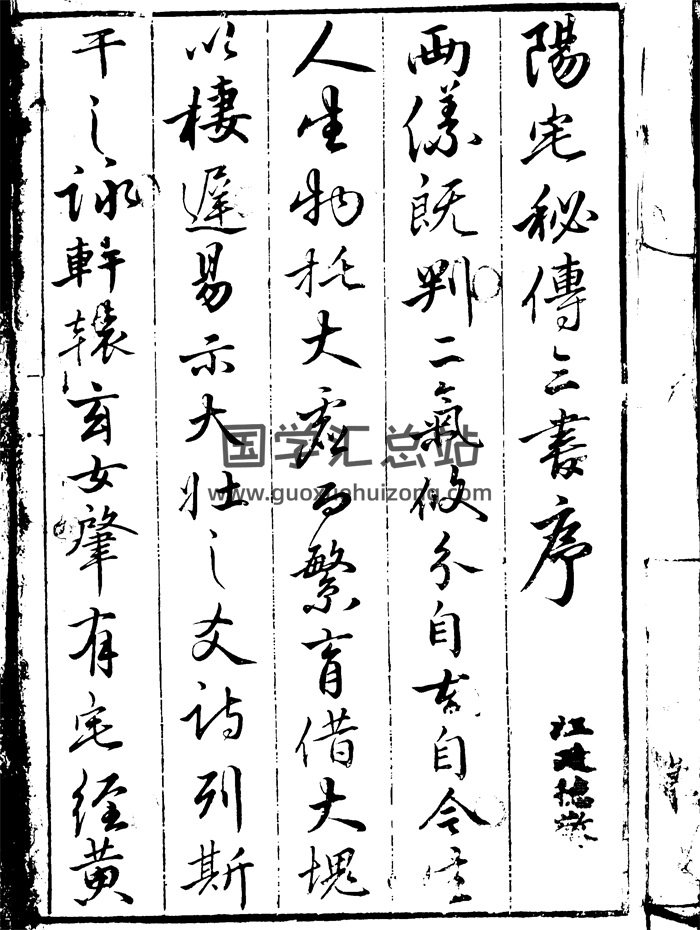 陽宅秘傳三書序
兩儀既判二氣攸分自古自今生
人生物托大虛而繁育借大塊
以棲遲易示大壯之爻詩列斯
干之詠軒轅玄女肇有宅經黃
国学汇总站
www.guoxuehuizong.com